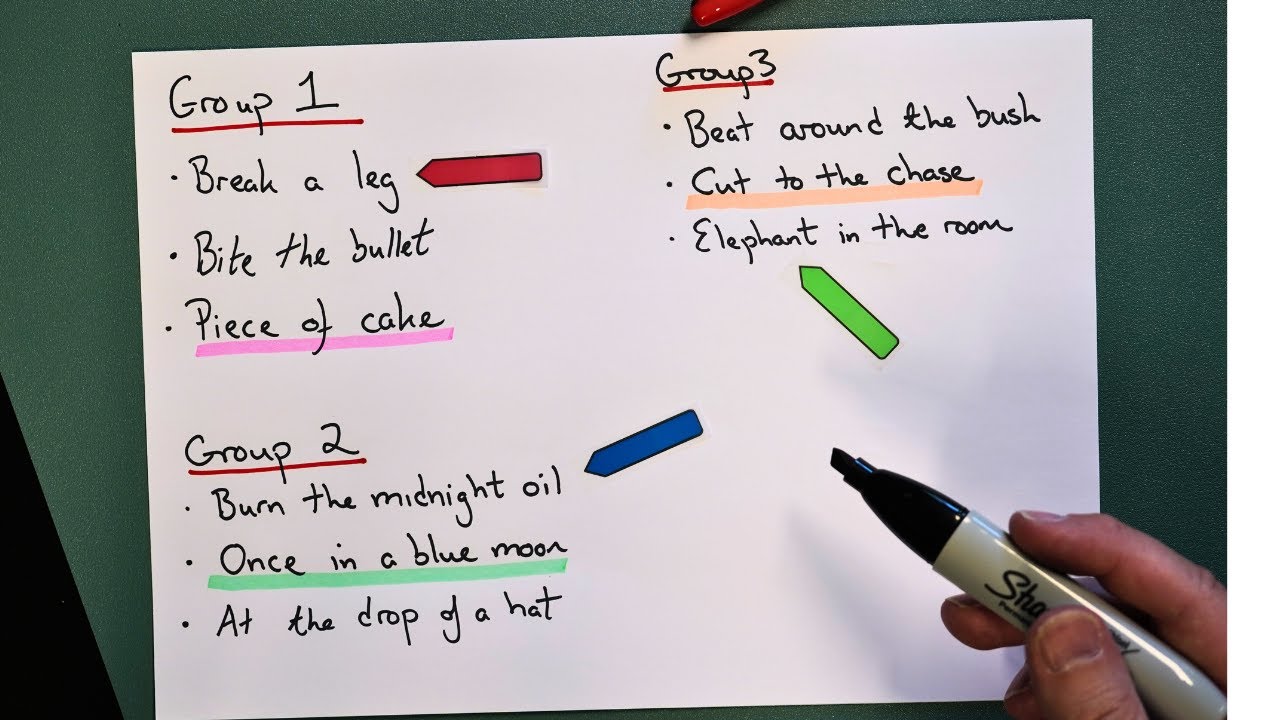 Group 1
• Break a leg
• Bite the bullet
• Piece of cake
Group 2
• Burn the midnight oil
• Once in a blue moon
• At the drop of a hat
Group 3
• Beat around the bush
• Cut to the chase
• Elephant in the room